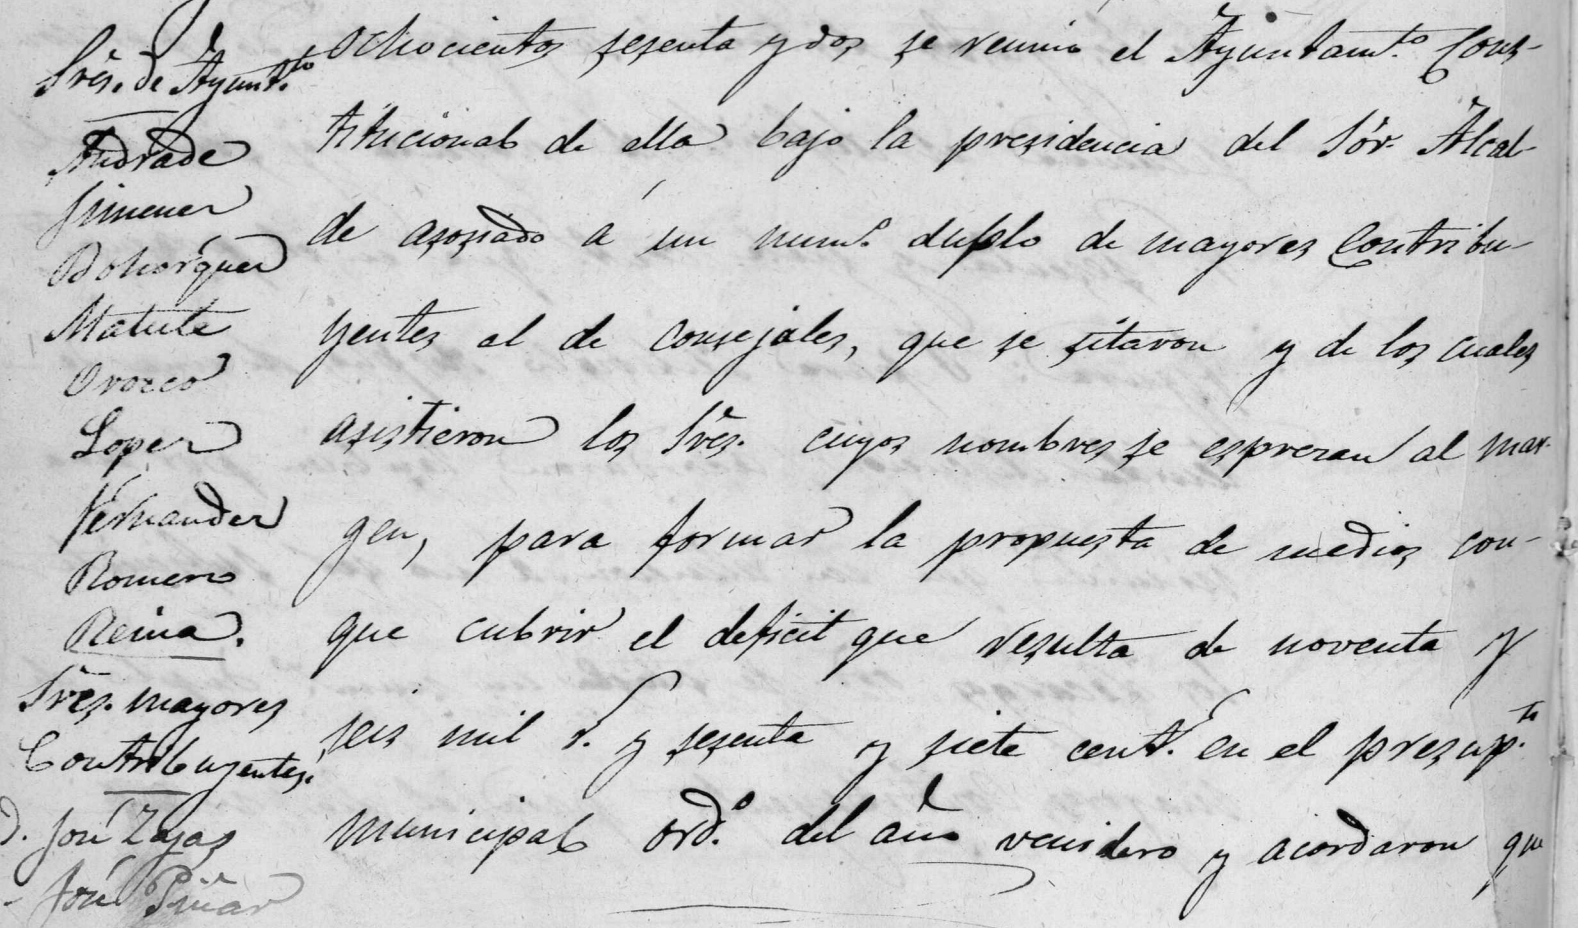 Sres. de Ayunt.to
Andrade
Jimenez
Bohorquez
Matute
Orozco
Lopez
Fernandez
Romero
Reina.
Sres. mayores
Contribuyentes.
D. José Zajas
José Piñar
ochocientos sesenta y dos se reunio el Ayuntam.to Cons-
titucional de ella bajo la presidencia del Sór. Alcal-
de asosiado á un num.o duplo de mayores Contribu-
yentes al de consejales, que se sitaron y de los cuales
asistieron los Sres. cuyos nombres se espresan al mar-
gen, para formar la propuesta de medios con-
que cubrir el deficit que resulta de noventa y
seis mil r. y sesenta y siete cent. en el presup.to
municipal ord.o del año venidero y acordaron que